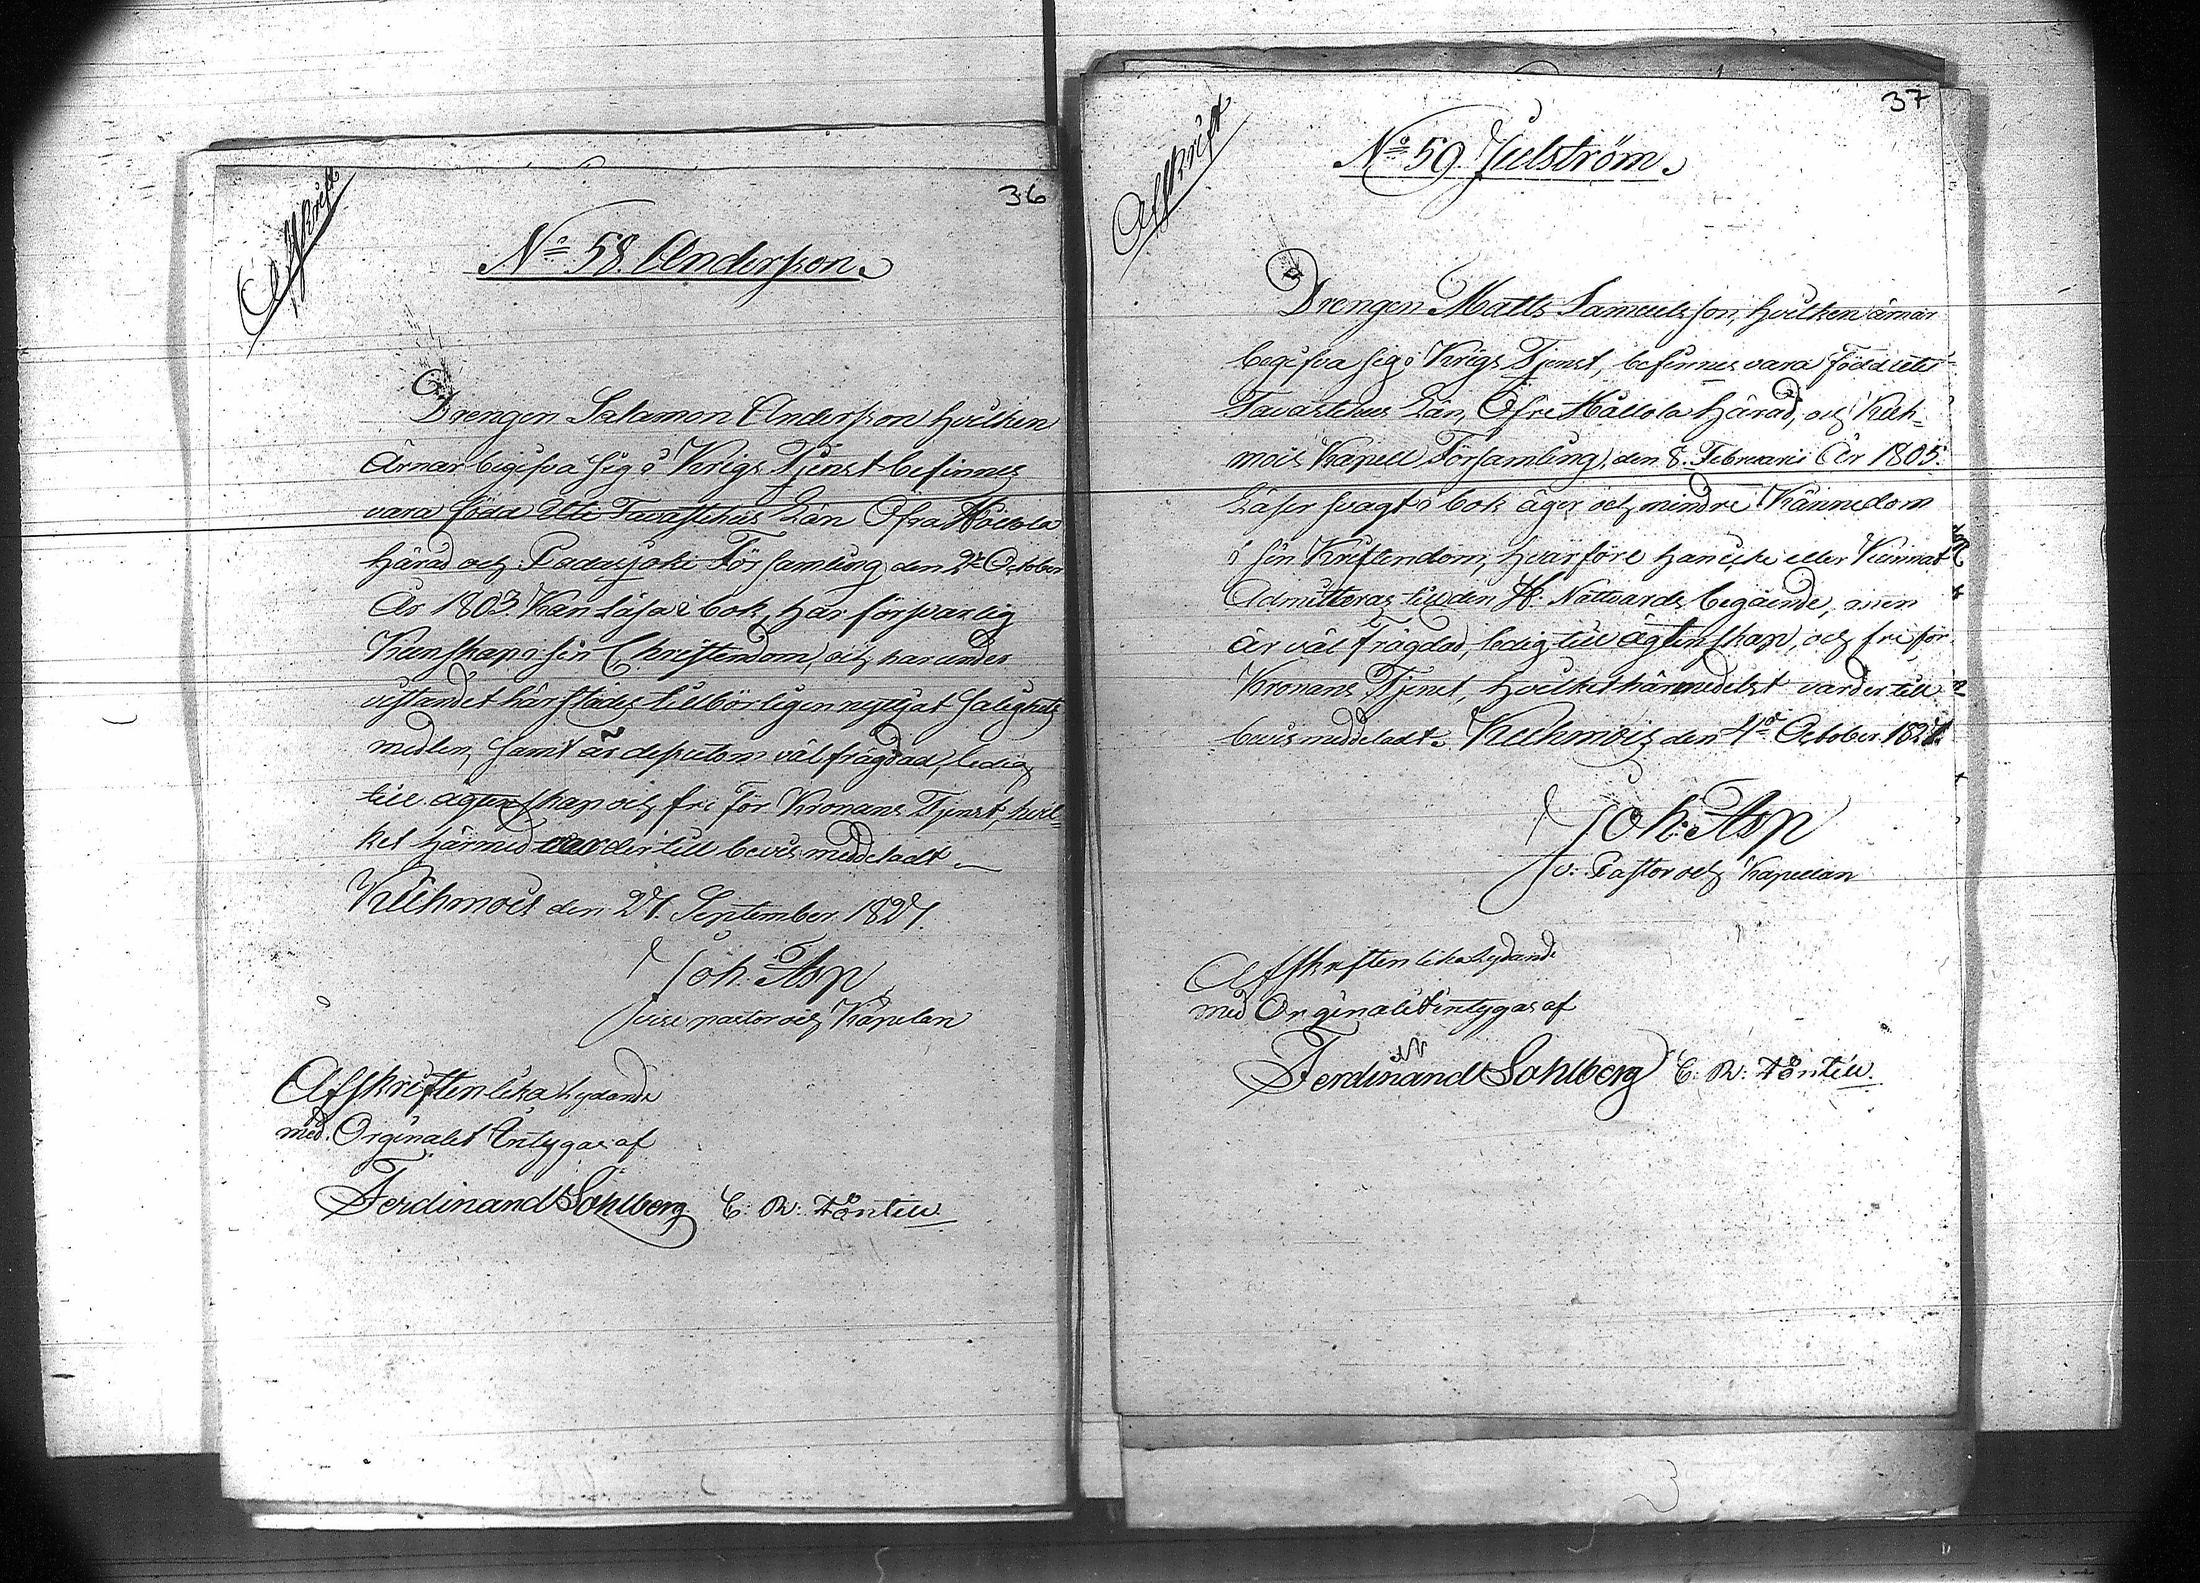 36
Afskrift
No 58. Andersson.
Drengen Salamon Andersson hvilken
Ärnar begifva sig i Krigs Tjenst befinnes
vara föda uti Tavastehus Län Öfra Hållola
Härad och Padasjoki Församling den 2te October
År 1803. Kan läsa i bok, har försvarlig
Kunskap i sin Christendom, och har under
vistandet härstädes tillbörligen nyttjat salighets
medlen, samt är dessutom väl frägdad, ledig
till ägtenskap och fri för Kronans Tjenst, hvil-
ket härmed varder till bevis meddeladt
Kuhmois den 27. September 1827.
Joh. Asp
vice pastor och Kapelan
Afskriften lika lydande
med Orginalet Intygas af
Ferdinand Sohlberg

37
Afskrift
No 59 Julström.
Drengen Matts Samuelsson, hvilken ärnar
begifva sig i Krigs Tjenst, befinnes vara född uti
Tavastehus Län, Öfre Hållola Härad, och Kuh-
mois Kapell Församling, den 8. Februarii År 1805.
Läser svagt i bok äger och mindre Kännedom
i sin Kristendom, hvarföre han icke eller Kunnat
Admitteras till den H. Nattvards begående, men
är väl frägdad, ledig till ägtenskap, och fri för
Kronans Tjenst, hvilket härmedelst varder till
bevis meddeladt. Kuhmois den 4de October 1827.
Joh. Asp
v. Pastor och Kapellan
Afskriften lika lydande
med Orginalet intygas af
Ferdinand Sohlberg